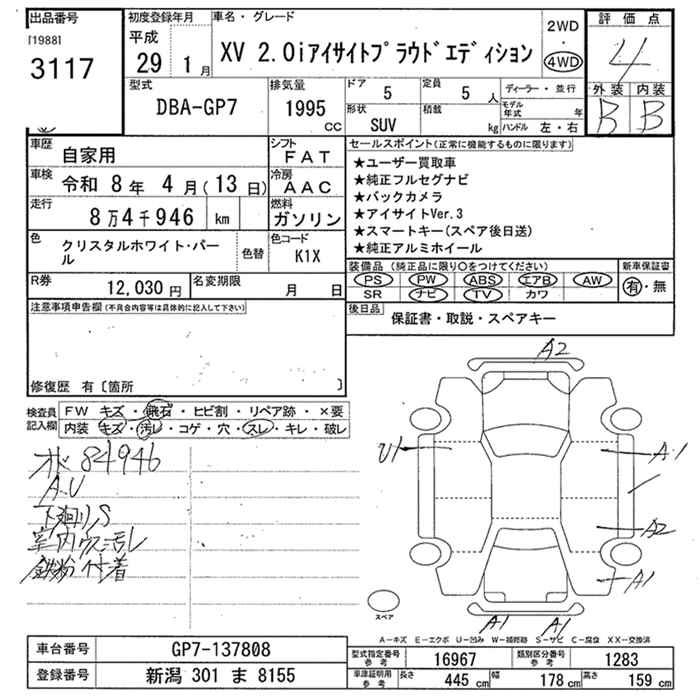 出品番号
[1988]
3117
初度登録年月
平成
29 1月
車名・グレード
XV 2.0iアイサイトプラウドエディション
2WD
・
4WD
評価点
4
型式
DBA-GP7
排気量
1995
CC
ドア
5
定員
5 人
形状
SUV
積載
kg
ディーラー・並行
モデル年式 年
ハンドル 左・右
外装 内装
B B
車歴
自家用
シフト
FAT
車検
令和 8年 4月(13日)
冷房
AAC
走行
8万4千946 km
燃料
ガソリン
色
クリスタルホワイト・パール
色替
色コード
K1X
R券
12,030円
名変期限
月 日
セールスポイント(正常に機能するものに限ります)
★ユーザー買取車
★純正フルセグナビ
★バックカメラ
★アイサイトVer.3
★スマートキー(スペア後日送)
★純正アルミホイール
装備品(純正品に限り○をつけてください)
PS PW ABS エアB AW
SR ナビ TV カワ
新車保証書
有・無
後日品
保証書・取説・スペアキー
注意事項申告欄(不具合内容等は具体的に記入して下さい)
修復歴 有〔箇所 〕
検査員記入欄
FW キズ・飛石・ヒビ割・リペア跡・×要
内装 キズ・汚レ・コゲ・穴・スレ・キレ・破レ
オド 84946
A.U
下廻りS
室内ウス汚レ
鉄粉付着
A2
U1
A1
A2
A1
A1
A1
スペア
A-キズ E-エクボ U-凹み W-補修跡 S-サビ C-腐食 XX-交換済
車台番号
GP7-137808
登録番号
新潟 301 ま 8155
型式指定番号
参考
16967
類別区分番号
参考
1283
車庫証明用
参考
長さ 445cm 幅 178cm 高さ 159cm